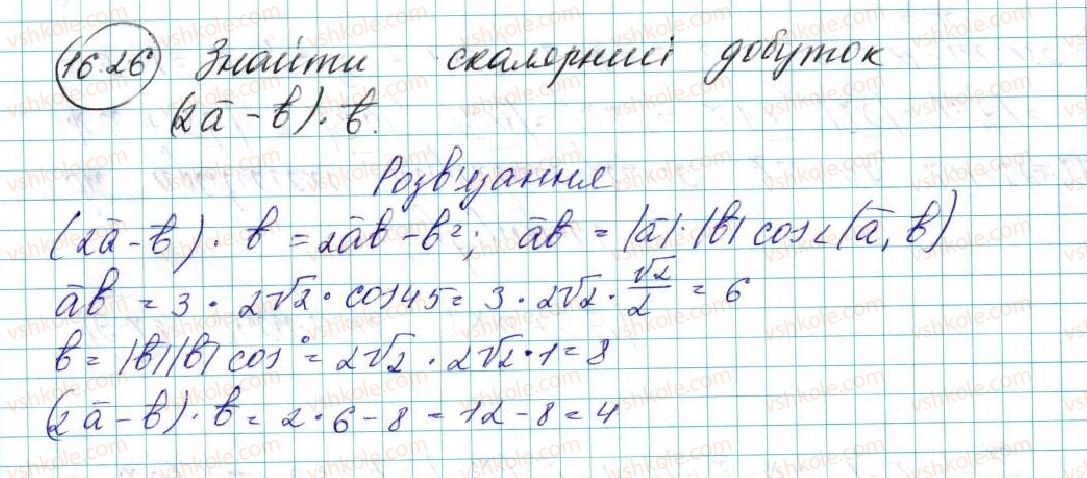 16.26 Знайти скалярний добуток
(2a̅ - b̅) · b̅.
Розв'язання
(2a̅ - b̅) · b̅ = 2a̅b̅ - b̅²; a̅b̅ = |a̅| · |b̅| cos∠(a̅, b̅)
a̅b̅ = 3 · 2√2 · cos45 = 3 · 2√2 · √2/2 = 6
b̅ = |b̅||b̅| cos° = 2√2 · 2√2 · 1 = 8
(2a̅ - b̅) · b̅ = 2 · 6 - 8 = 12 - 8 = 4